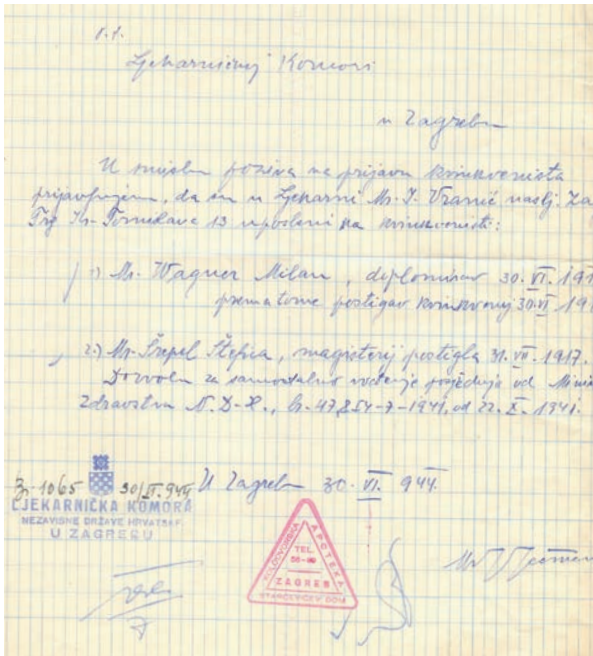 Ljekarničkoj Komori
u Zagrebu
U smislu poziva na prijavu kninkvenista
prijavljujem, da su u Ljekarni Mr. J. Vranić naslj. Za
Trg Kr. Tomislava 13 uposleni kninkvenisti:
1.) Mr. Wagner Milan, diplomirao 30. VI. 191
prema tome postigao 30. VI 19
2.) Mr. Šrepel Štefica, magisterij postigla 31. VII. 1917.
Dozvolu za samostalno vođenje posjeduje od Minis
Zdravstva N.D.H., br. 47854-7-1941, od 22. X. 1941.
1065 30/VI. 944
U Zagrebu 30. VI. 944.
LJEKARNIČKA KOMORA
NEZAVISNE DRŽAVE HRVATSKE
U ZAGREBU
KOLODVORSKA APOTEKA
TEL.
ZAGREB
STARČEVIĆEV DOM
Mr